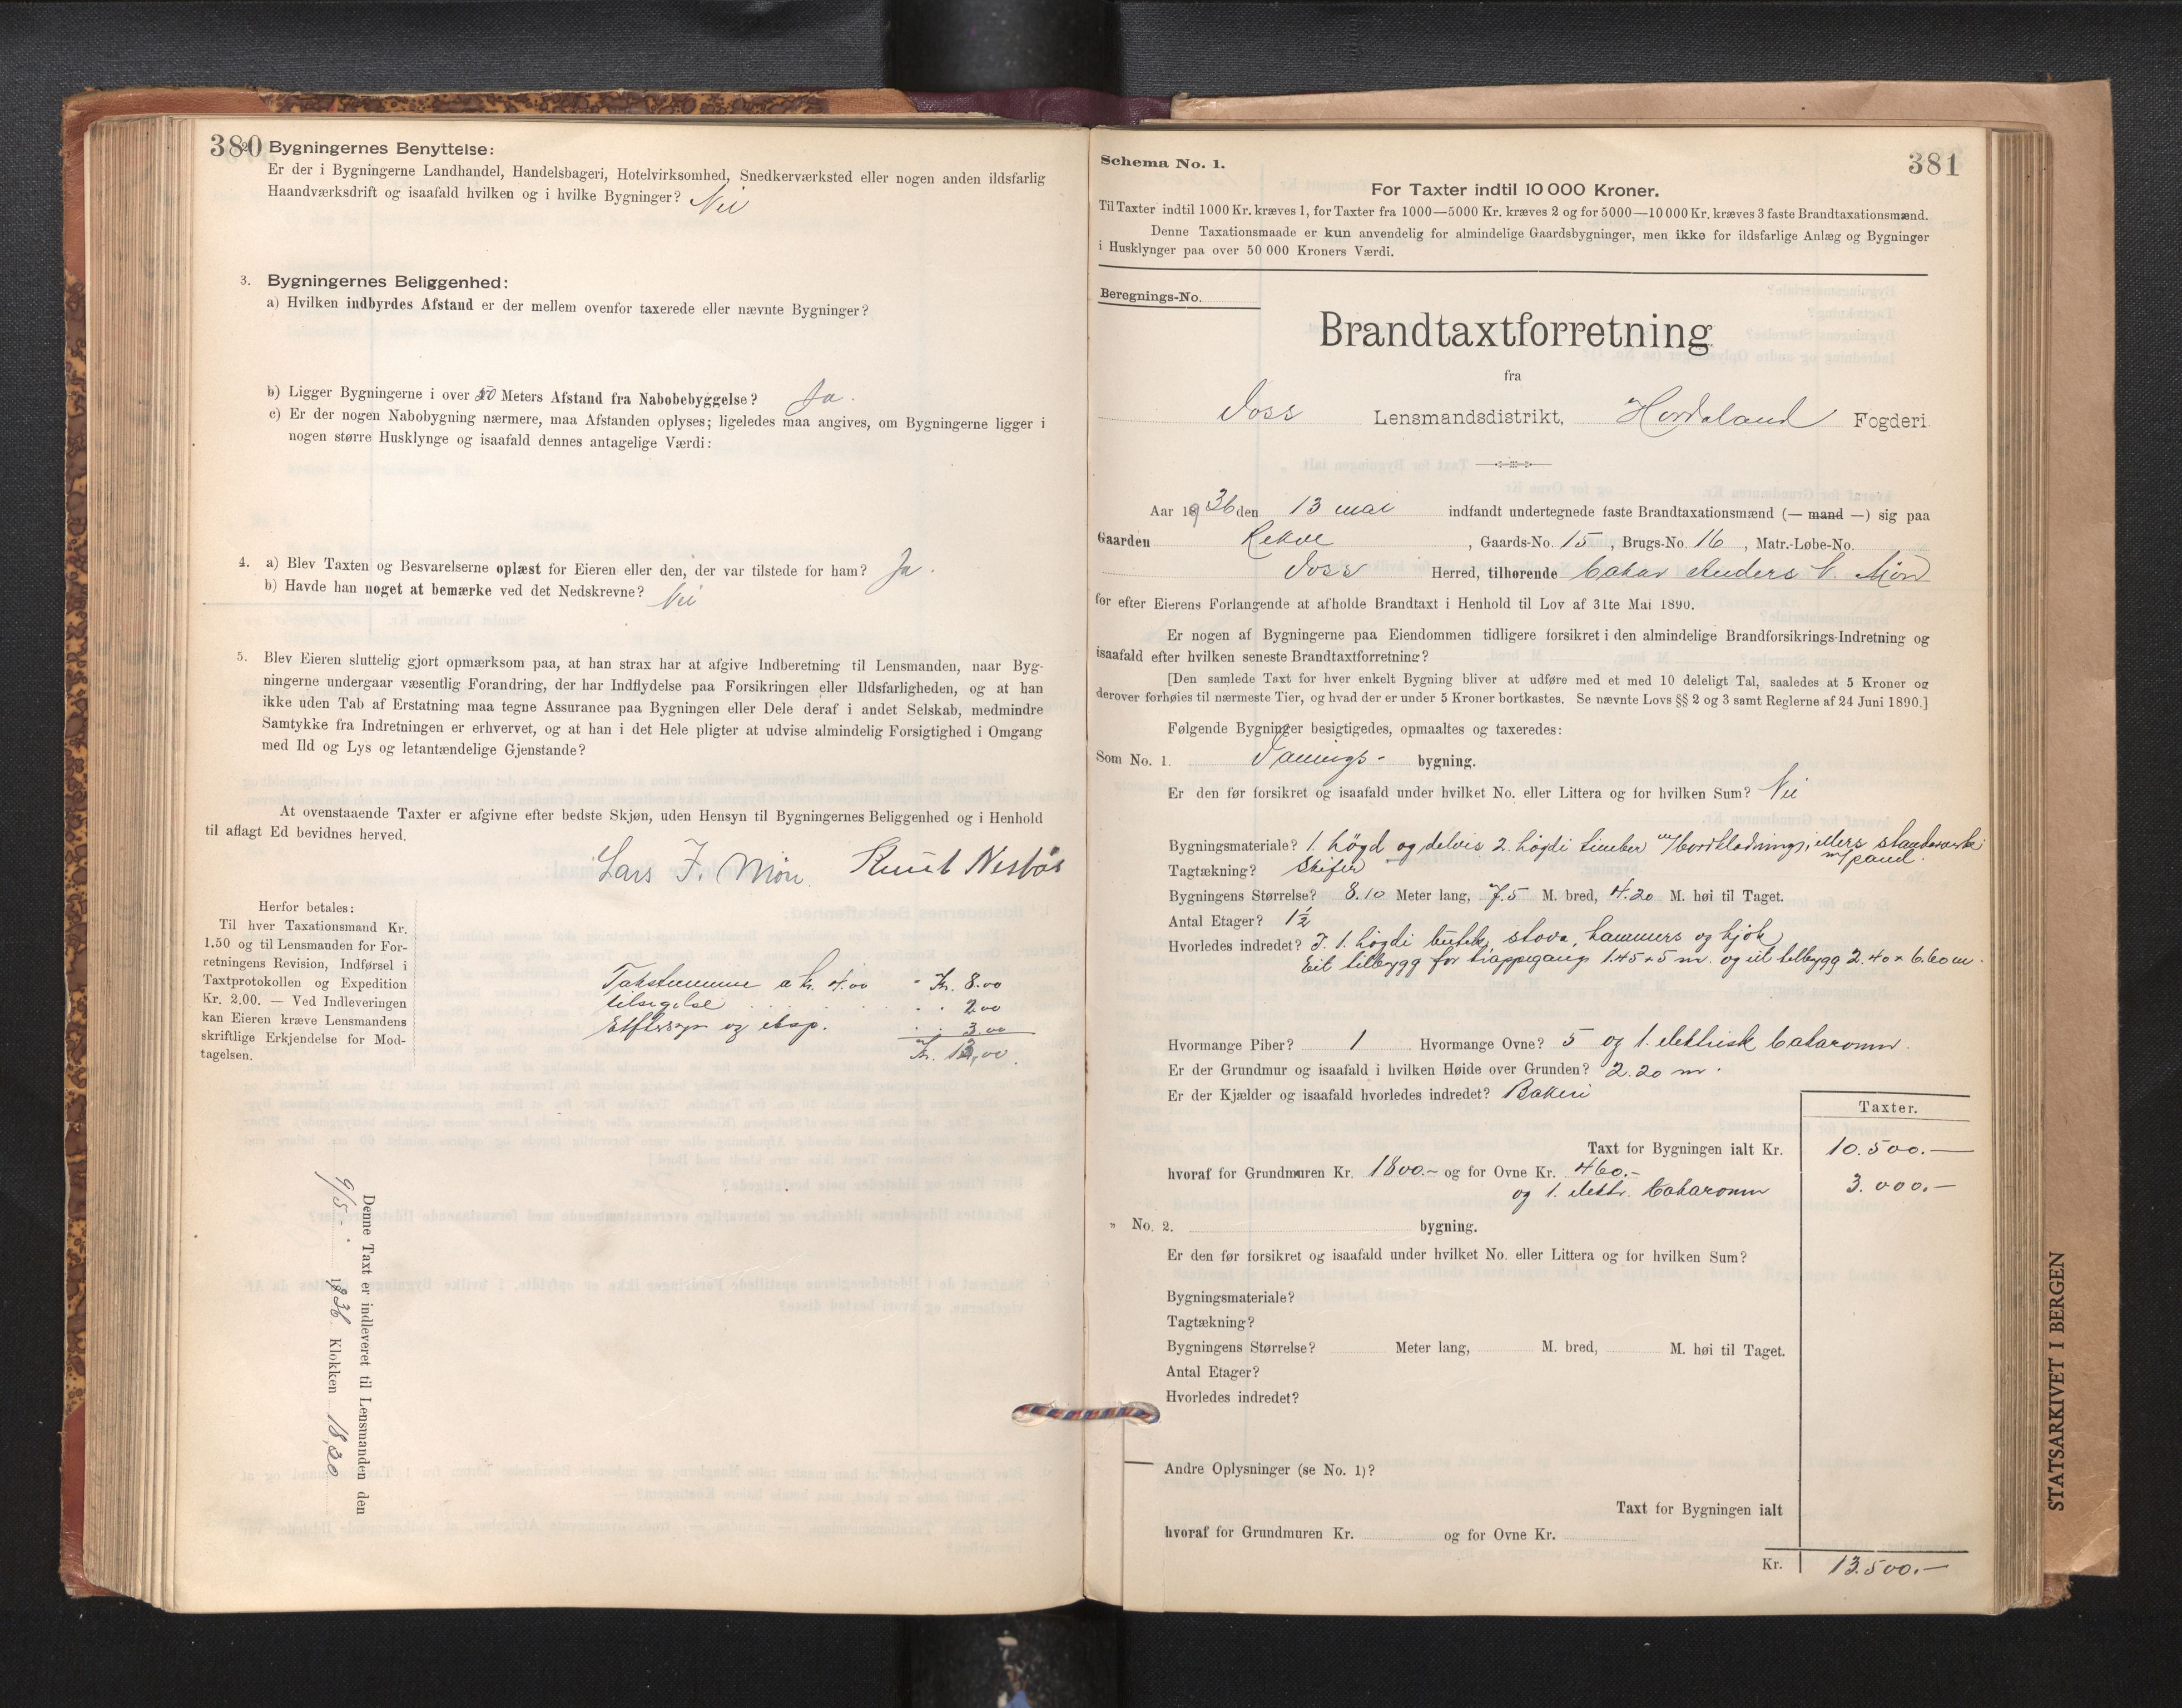 380
2. Bygningernes Benyttelse:
Er der i Bygningerne Landhandel, Handelsbageri, Hotelvirksomhed, Snedkerværksted eller nogen anden ildsfarlig
Haandværksdrift og isaafald hvilken og i hvilke Bygninger? Nei
3. Bygningernes Beliggenhed:
a) Hvilken indbyrdes Afstand er der mellem ovenfor taxerede eller nævnte Bygninger?
b) Ligger Bygningerne i over 50 Meters Afstand fra Nabobebyggelse? Ja.
c) Er der nogen Nabobygning nærmere, maa Afstanden oplyses; ligeledes maa angives, om Bygningerne ligger i
nogen større Husklynge og isaafald dennes antagelige Værdi:
4. a) Blev Taxten og Besvarelserne oplæst for Eieren eller den, der var tilstede for ham? Ja.
b) Havde han noget at bemærke ved det Nedskrevne? Nei
5. Blev Eieren sluttelig gjort opmærksom paa, at han strax har at afgive Indberetning til Lensmanden, naar Byg-
ningerne undergaar væsentlig Forandring, der har Indflydelse paa Forsikringen eller Ildsfarligheden, og at han
ikke uden Tab af Erstatning maa tegne Assurance paa Bygningen eller Dele deraf i andet Selskab, medmindre
Samtykke fra Indretningen er erhvervet, og at han i det Hele pligter at udvise almindelig Forsigtighed i Omgang
med Ild og Lys og letantændelige Gjenstande?
At ovenstaaende Taxter er afgivne efter bedste Skjøn, uden Hensyn til Bygningernes Beliggenhed og i Henhold
til aflagt Ed bevidnes herved.
Lars J. Møn. Knut Nesbös
Herfor betales:
Til hver Taxationsmand Kr.
1.50 og til Lensmanden for For-
retningens Revision, Indførsel i
Taxtprotokollen og Expedition
Kr. 2.00. — Ved Indleveringen
kan Eieren kræve Lensmandens
skriftlige Erkjendelse for Mod-
tagelsen.
Takstmenn a kr. 4.00 - Kr. 8.00
tilsigelse 2.00
Ettersyn og eksp. 3.00
Kr. 13,00.
Denne Taxt er indleveret til Lensmanden den
9/5. 1936 Klokken 18,20
Schema No. 1.
381
For Taxter indtil 10 000 Kroner.
Til Taxter indtil 1000 Kr. kræves 1, for Taxter fra 1000—5000 Kr. kræves 2 og for 5000—10 000 Kr. kræves 3 faste Brandtaxationsmænd.
Denne Taxationsmaade er kun anvendelig for almindelige Gaardsbygninger, men ikke for ildsfarlige Anlæg og Bygninger
i Husklynger paa over 50 000 Kroners Værdi.
Beregnings-No.
Brandtaxtforretning
fra
Voss Lensmandsdistrikt, Hordaland Fogderi
Aar 1936 den 13 mai indfandt undertegnede faste Brandtaxationsmænd (— mand —) sig paa
Gaarden Rekve, Gaards-No. 15, Brugs-No. 16, Matr.-Løbe-No.
Voss Herred, tilhørende bakar Anders V. Møn
for efter Eierens Forlangende at afholde Brandtaxt i Henhold til Lov af 31te Mai 1890.
Er nogen af Bygningerne paa Eiendommen tidligere forsikret i den almindelige Brandforsikrings-Indretning og
isaafald efter hvilken seneste Brandtaxtforretning?
[Den samlede Taxt for hver enkelt Bygning bliver at udføre med et med 10 deleligt Tal, saaledes at 5 Kroner og
derover forhøies til nærmeste Tier, og hvad der er under 5 Kroner bortkastes. Se nævnte Lovs §§ 2 og 3 samt Reglerne af 24 Juni 1890.]
Følgende Bygninger besigtigedes, opmaaltes og taxeredes:
Som No. 1. Vaanings- bygning.
Er den før forsikret og isaafald under hvilket No. eller Littera og for hvilken Sum? Nei
Bygningsmateriale? 1. högd og delvis 2. högdi timber m/bordkledning, ellers standarverk
m/panel.
Tagtækning? Skifer
Bygningens Størrelse? 8.10 Meter lang, 7.5 M. bred, 4.20 M. høi til Taget.
Antal Etager? 1 1/2
Hvorledes indredet? I. 1. högdi butik, stova, kammers og kjök
Eit tilbygg for trappegang 1.45 x 5 m. og eit tilbygg 2.40 x 6.60 m.
Hvormange Piber? 1 Hvormange Ovne? 5 og 1. elektrisk bakaromn.
Er der Grundmur og isaafald i hvilken Høide over Grunden? 2.20 m.
Er der Kjælder og isaafald hvorledes indredet? Bakeri
Taxter.
Taxt for Bygningen ialt Kr. 10.500.—
hvoraf for Grundmuren Kr. 1800.- og for Ovne Kr. 460.-
og 1. elektr. bakaromn 3.000.—
" No. 2. bygning.
Er den før forsikret og isaafald under hvilket No. eller Littera og for hvilken Sum?
Bygningsmateriale?
Tagtækning?
Bygningens Størrelse? Meter lang, M. bred, M. høi til Taget.
Antal Etager?
Hvorledes indredet?
Andre Oplysninger (se No. 1)?
Taxt for Bygningen ialt
hvoraf for Grundmuren Kr. og for Ovne Kr.
Kr. 13.500.—
STATSARKIVET I BERGEN